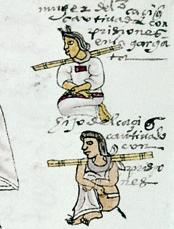 muger del caçiq̃
cautiuada con
prisiones
en la gargan
ta
hijo del caciq̃
cautiuado
con
prisio
nes